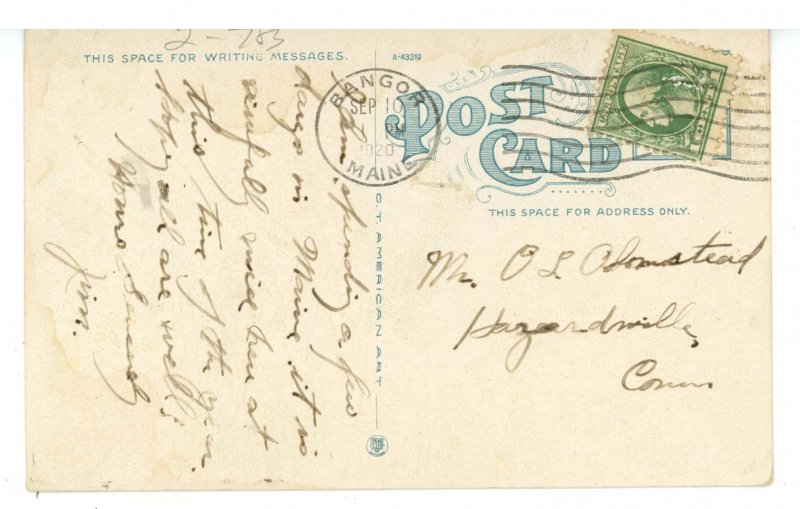 2-783
THIS SPACE FOR WRITING MESSAGES.
A-43319
POST
CARD
THIS SPACE FOR ADDRESS ONLY.
BANGOR
SEP 10
1920
MAINE
C.T. AMERICAN ART
Am spending a few
days in Maine. it is
here at
this time of the year.
Hope all are well.
Yours Sincerely
Jim.
Mr. O L Olmstead
Hazardville,
Conn